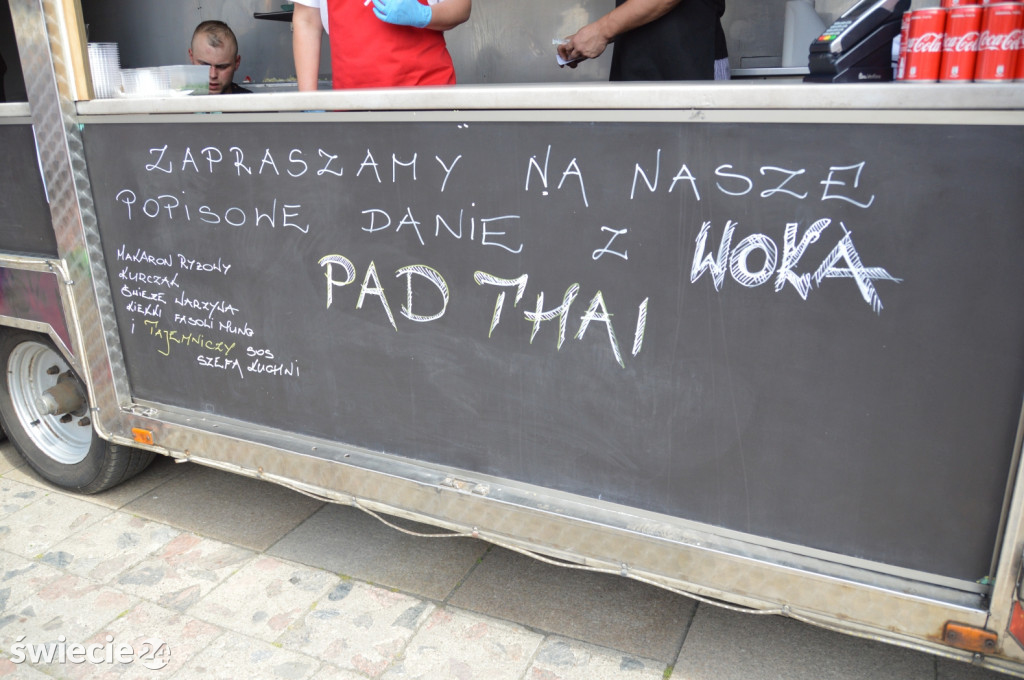 ZAPRASZAMY NA NASZE
POPISOWE DANIE Z WOKA
PAD THAI
MAKARON RYŻOWY
KURCZAK
ŚWIEŻE WARZYWA
KIEŁKI FASOLI MUNG
I TAJEMNICZY SOS
SZEFA KUCHNI
Coca-Cola
Coca-Cola
Coca-Cola
świecie24